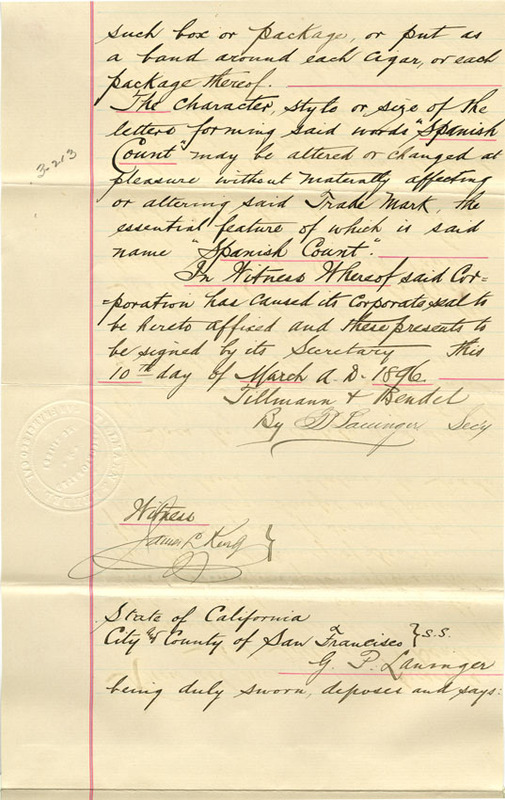 such box or package, or put as
a band around each cigar, or each
package thereof.
The Character, style or size of the
letters forming said words "Spanish
Count" may be altered or changed at
pleasure without materially affecting
or altering said Trade Mark, the
essential feature of which is said
name "Spanish Count".
In Witness Whereof said Cor=
=poration has caused its Corporate seal to
be hereto affixed and these presents to
be signed by its Secretary this
10th day of March A. D. 1896.
Tillmann & Bendel
By Secy
Witness
James L. King }
State of California
City & County of San Francisco } S.S.
G. P.
being duly sworn, deposes and says:
3-213